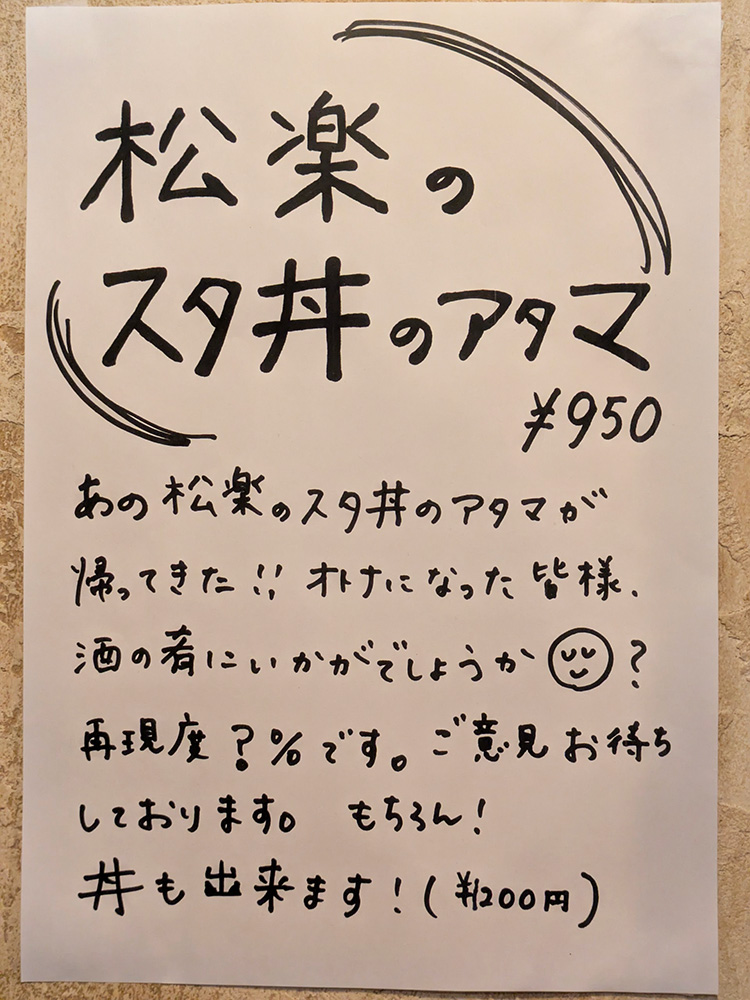 松楽の
スタ丼のアタマ
¥950
あの松楽のスタ丼のアタマが
帰ってきた!! オトナになった皆様、
酒の肴にいかがでしょうか?
再現度?%です。ご意見お待ち
しております。 もちろん!
丼も出来ます!(¥1200円)